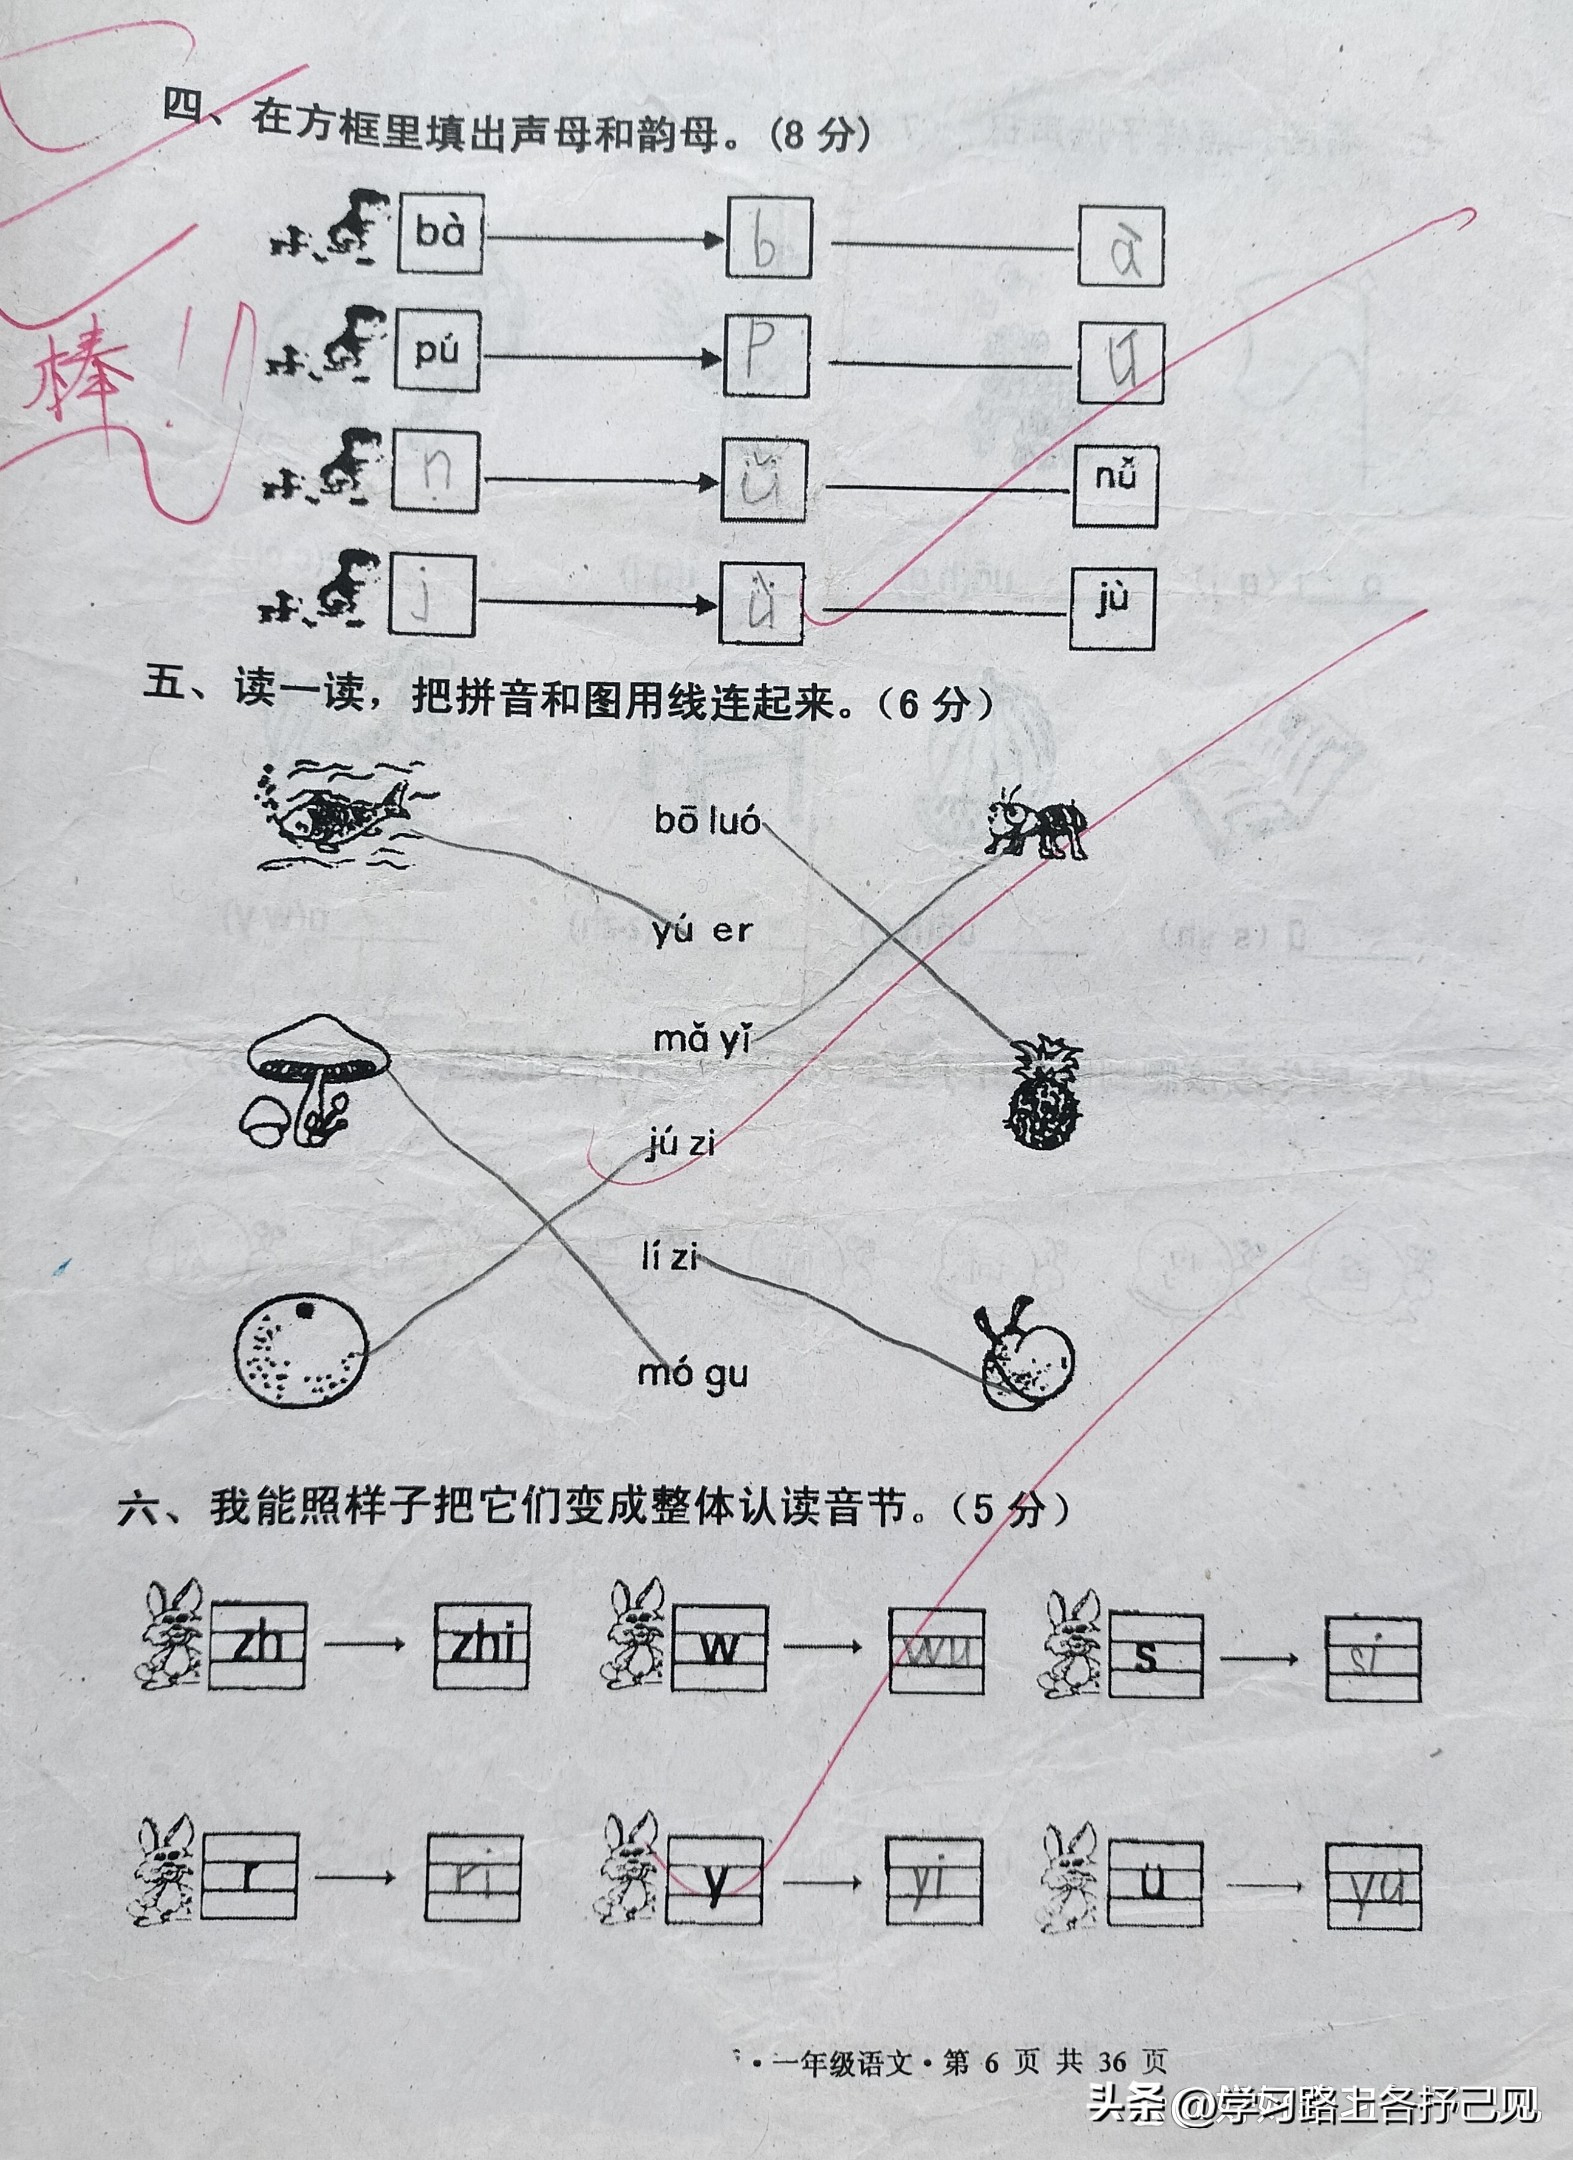 四、在方框里填出声母和韵母。(8 分)
bà b à
pú p ú
n ǚ nǚ
j ǜ jù
棒!!
五、读一读，把拼音和图用线连起来。(6 分)
bō luó
yú er
mǎ yǐ
jú zi
lí zi
mó gu
六、我能照样子把它们变成整体认读音节。(5 分)
zh zhi w wu s si
r ri y yi ü yu
·一年级语文·第 6 页 共 36 页
头条 @学习路上各抒己见